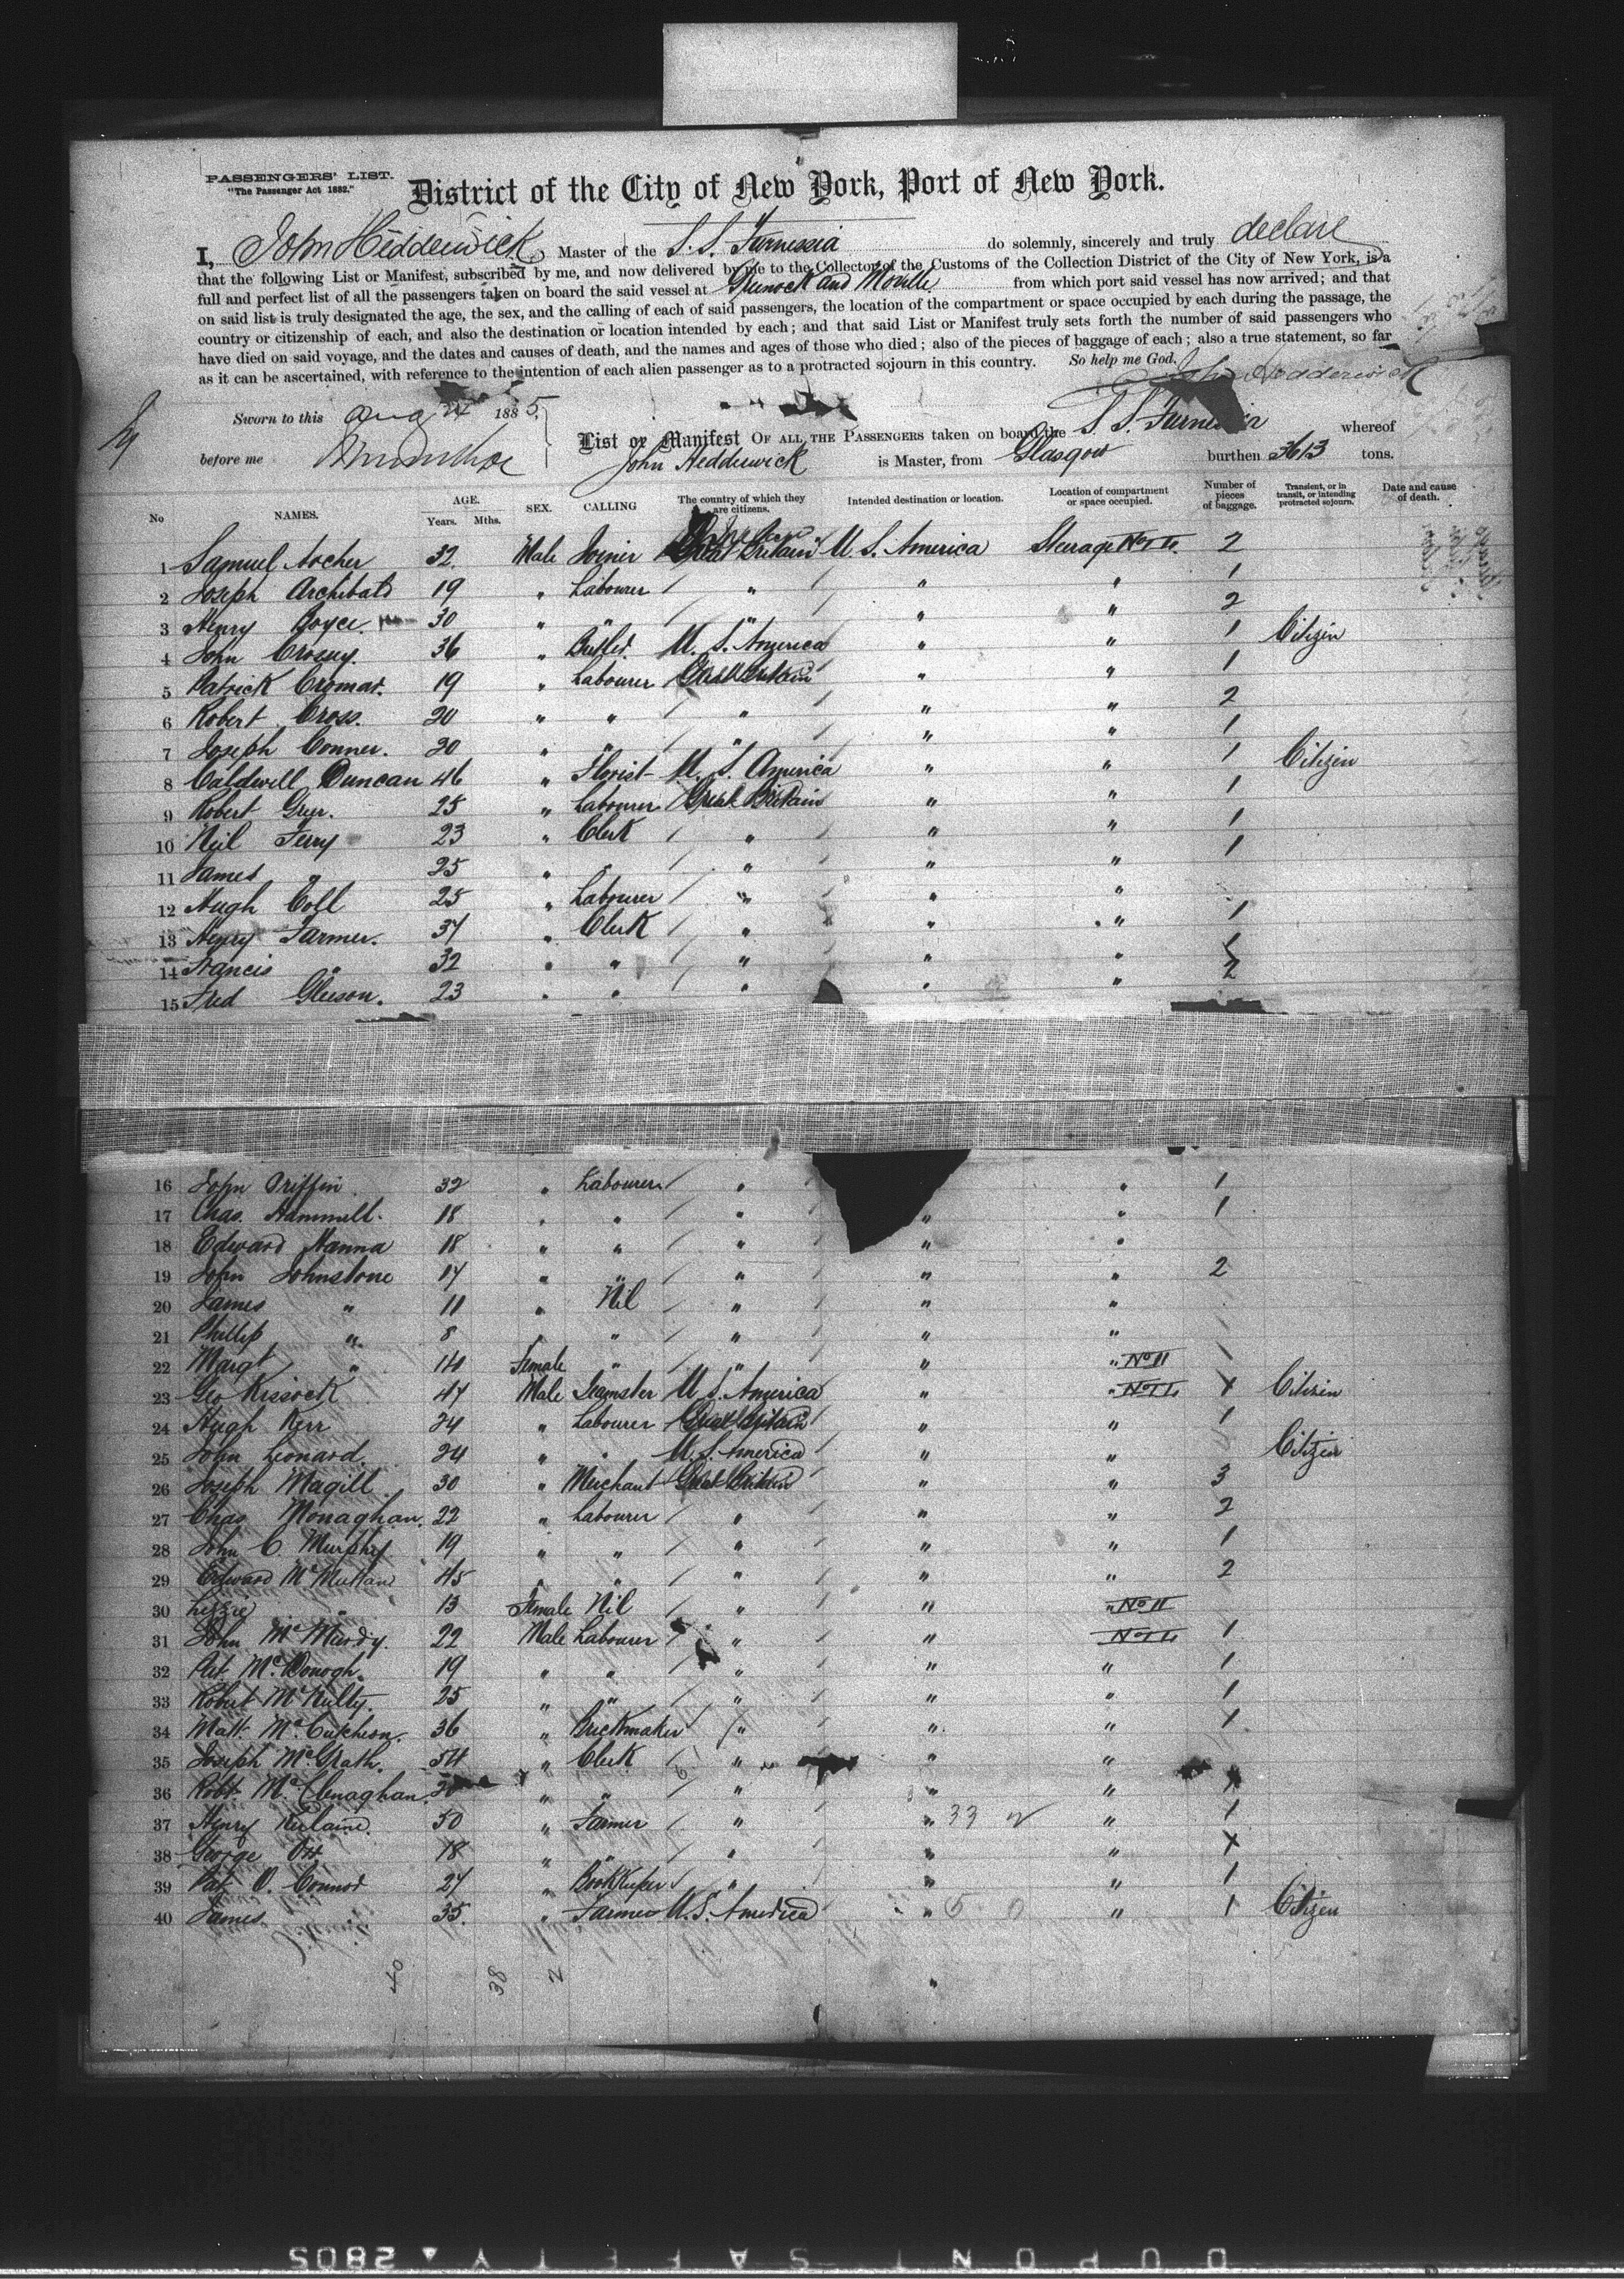 PASSENGERS' LIST.
"The Passenger Act 1882."
District of the City of New York, Port of New York.
I, John Hedderwick Master of the S.S. Furnessia do solemnly, sincerely and truly declare
that the following List or Manifest, subscribed by me, and now delivered by me to the Collector of the Customs of the Collection District of the City of New York, is a
full and perfect list of all the passengers taken on board the said vessel at Greenock and Moville from which port said vessel has now arrived; and that
on said list is truly designated the age, the sex, and the calling of each of said passengers, the location of the compartment or space occupied by each during the passage, the
country or citizenship of each, and also the destination or location intended by each; and that said List or Manifest truly sets forth the number of said passengers who
have died on said voyage, and the dates and causes of death, and the names and ages of those who died; also of the pieces of baggage of each; also a true statement, so far
as it can be ascertained, with reference to the intention of each alien passenger as to a protracted sojourn in this country. So help me God.
John Hedderwick
Sworn to this Aug 1885
before me
List or Manifest OF ALL THE PASSENGERS taken on board the S.S. Furnessia whereof
John Hedderwick is Master, from Glasgow burthen 3613 tons.
No NAMES. AGE. Years. Mths. SEX. CALLING The country of which they are citizens. Intended destination or location. Location of compartment or space occupied. Number of pieces of baggage. Transient, or in transit, or intending protracted sojourn. Date and cause of death.
1 Samuel Archer 32 Male Joiner Great Britain U.S. America Steerage 2
2 Joseph Archibald 19 " Labourer " " " 1
3 Henry Boyce 30 " " " " " 2
4 John 36 " Butler U.S. America " " 1 Citizen
5 Patrick 19 " Labourer Great Britain " " 1
6 Robert Cross. 20 " " " " " 2
7 Joseph Conner. 20 " " " " " 1
8 Caldwell Duncan 46 " Florist U.S. America " " 1 Citizen
9 Robert 25 " Labourer Great Britain " " 1
10 Neil Ferry 23 " Clerk " " " 1
11 James " 25 " " " " " 1
12 Hugh Coll 25 " Labourer " " "
13 Henry Farmer. 34 " Clerk " " " 1
14 Francis " 32 " " " " "
15 Fred Gleeson. 23 " " " " " 2
16 John Griffin 32 " Labourer " " 1
17 Chas. Hammill 18 " " " " " 1
18 Edward Hanna 18 " " " " "
19 John Johnstone 14 " " " " " 2
20 James " 11 " Nil " " "
21 Phillip " 8 " " " " "
22 Margt " 14 Female " " " " No II
23 Geo Kissock 47 Male Teamster U.S. America " " Citizen
24 Hugh Kerr 24 " Labourer Great Britain " " 1
25 John Leonard. 24 " " U.S. America " " Citizen
26 Joseph Magill 30 " Merchant Great Britain " " 3
27 Chas Monaghan. 22 " Labourer " " " 2
28 John C. Murphy 19 " " " " " 1
29 Edward McMullan 45 " " " " " 2
30 Lizzie " 13 Female Nil " " " No II
31 John McMurdy. 22 Male Labourer " " 1
32 Pat McDonogh. 19 " " " " " 1
33 Robert McNulty. 25 " " " " " 1
34 Matt. McCutcheon. 36 " Brickmaker " " " 1
35 Joseph McGrath. 54 " Clerk " " "
36 Robt. McClenaghan. " " " " "
37 Henry 50 " Farmer " " 33 " 1
38 George Orr 18 " " " " "
39 Pat O. Connor 24 " Bookkeeper " " " 1
40 James " 35. " Farmer U.S. America " 5 0 " 1 Citizen
40 38 2
DUPONT SAFETY 2805